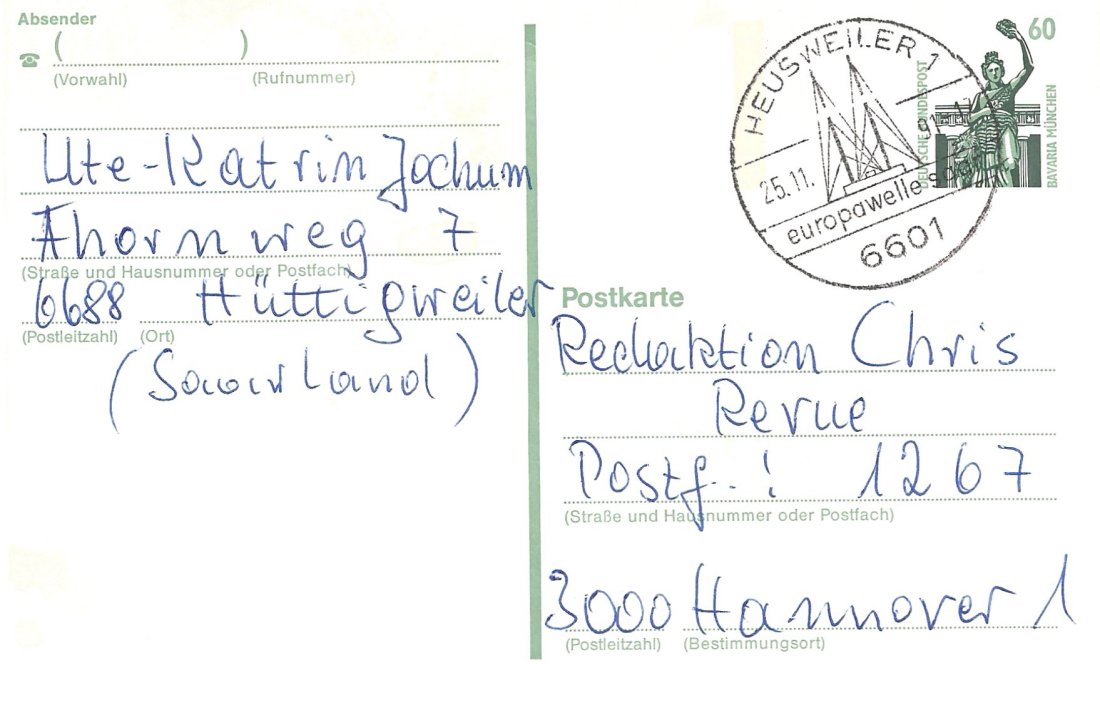 Absender
( )
(Vorwahl) (Rufnummer)
Ute-Katrin Jochum
Ahornweg 7
(Straße und Hausnummer oder Postfach)
6688 Hüttigweiler
(Postleitzahl) (Ort)
(Saarland)
HEUSWEILER 1
25.11. 91
europawelle saar
6601
60
DEUTSCHE BUNDESPOST
BAVARIA MÜNCHEN
Postkarte
Redaktion Chris
Revue
Postf..: 1267
(Straße und Hausnummer oder Postfach)
3000 Hannover 1
(Postleitzahl) (Bestimmungsort)